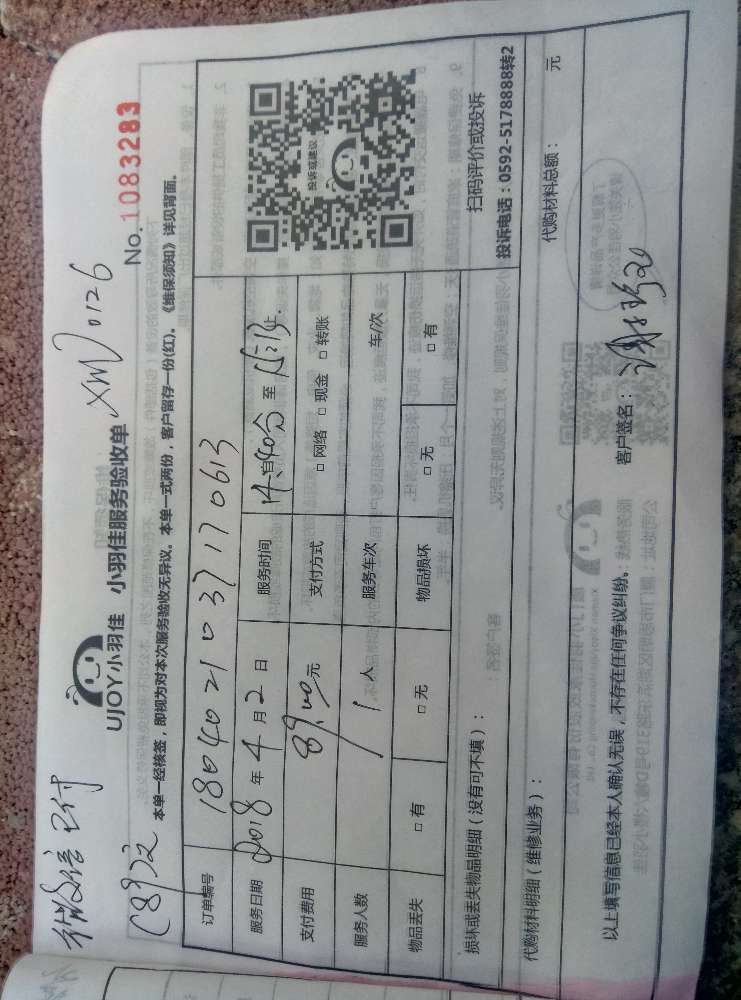 微信已付
(89)文 XM 0126
UJOY小羽佳 小羽佳服务验收单
No. 1083283
本单一经核签，即视为对本次服务验收无异议。本单一式两份，客户留存一份(红)。《维保须知》详见背面。
订单编号 180402103717 0613
服务日期 2018 年 4 月 2 日 服务时间 自 14:40分 至 15:13 止
支付费用 89.00 元 支付方式 □ 网络 □ 现金 □ 转账
服务人数 1 人 服务车次 车/次
物品丢失 □ 有 □ 无 物品损坏 □ 无 □ 有
投诉或建议
扫码评价或投诉
投诉电话：0592-5178888转2
损坏或丢失物品明细（没有可不填）：
代购材料明细（维修业务）： 代购材料总额： 元
以上填写信息已经本人确认无误，不存在任何争议纠纷。 客户签名：